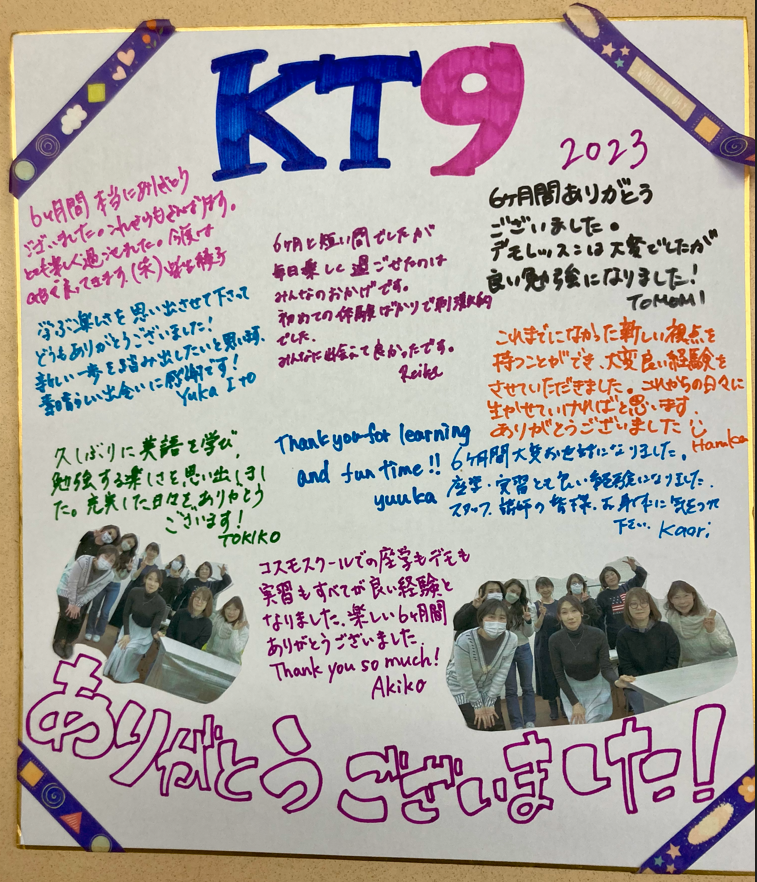 KT9
2023
6ヶ月間 本当にありがとう
ございました。
とても楽しく過ごせました。今度は
6ヶ月と短い間でしたが
毎日楽しく過ごせたのは
みんなのおかげです。
初めての体験ばかりで刺激的
でした。
みんなに出会えて良かったです。
Reiko
6ヶ月間ありがとう
ございました。
デモレッスンは大変でしたが
良い勉強になりました!
TOMOMI
学ぶ楽しさを思い出させて下さって
どうもありがとうございました!
新しい一歩を踏み出したいと思います。
素晴らしい出会いに感謝です!
Yuka Ito
これまでになかった新しい視点を
持つことができ、大変良い経験を
させていただきました。これからの日々に
生かせていければと思います。
ありがとうございました
Haruka
久しぶりに英語を学び、
勉強する楽しさを思い出しまし
た。充実した日々を、ありがとう
ございます!
TOKIKO
Thank you for learning
and fun time!!
yuuka
6ヶ月間大変お世話になりました。
座学、実習とても良い経験になりました。
スタッフ、講師の皆様、お身体に気をつけて
下さい。
Kaori
コスモスクールでの座学もデモも
実習もすべてが良い経験と
なりました。楽しい6ヶ月間
ありがとうございました。
Thank you so much!
Akiko
ありがとうございました!